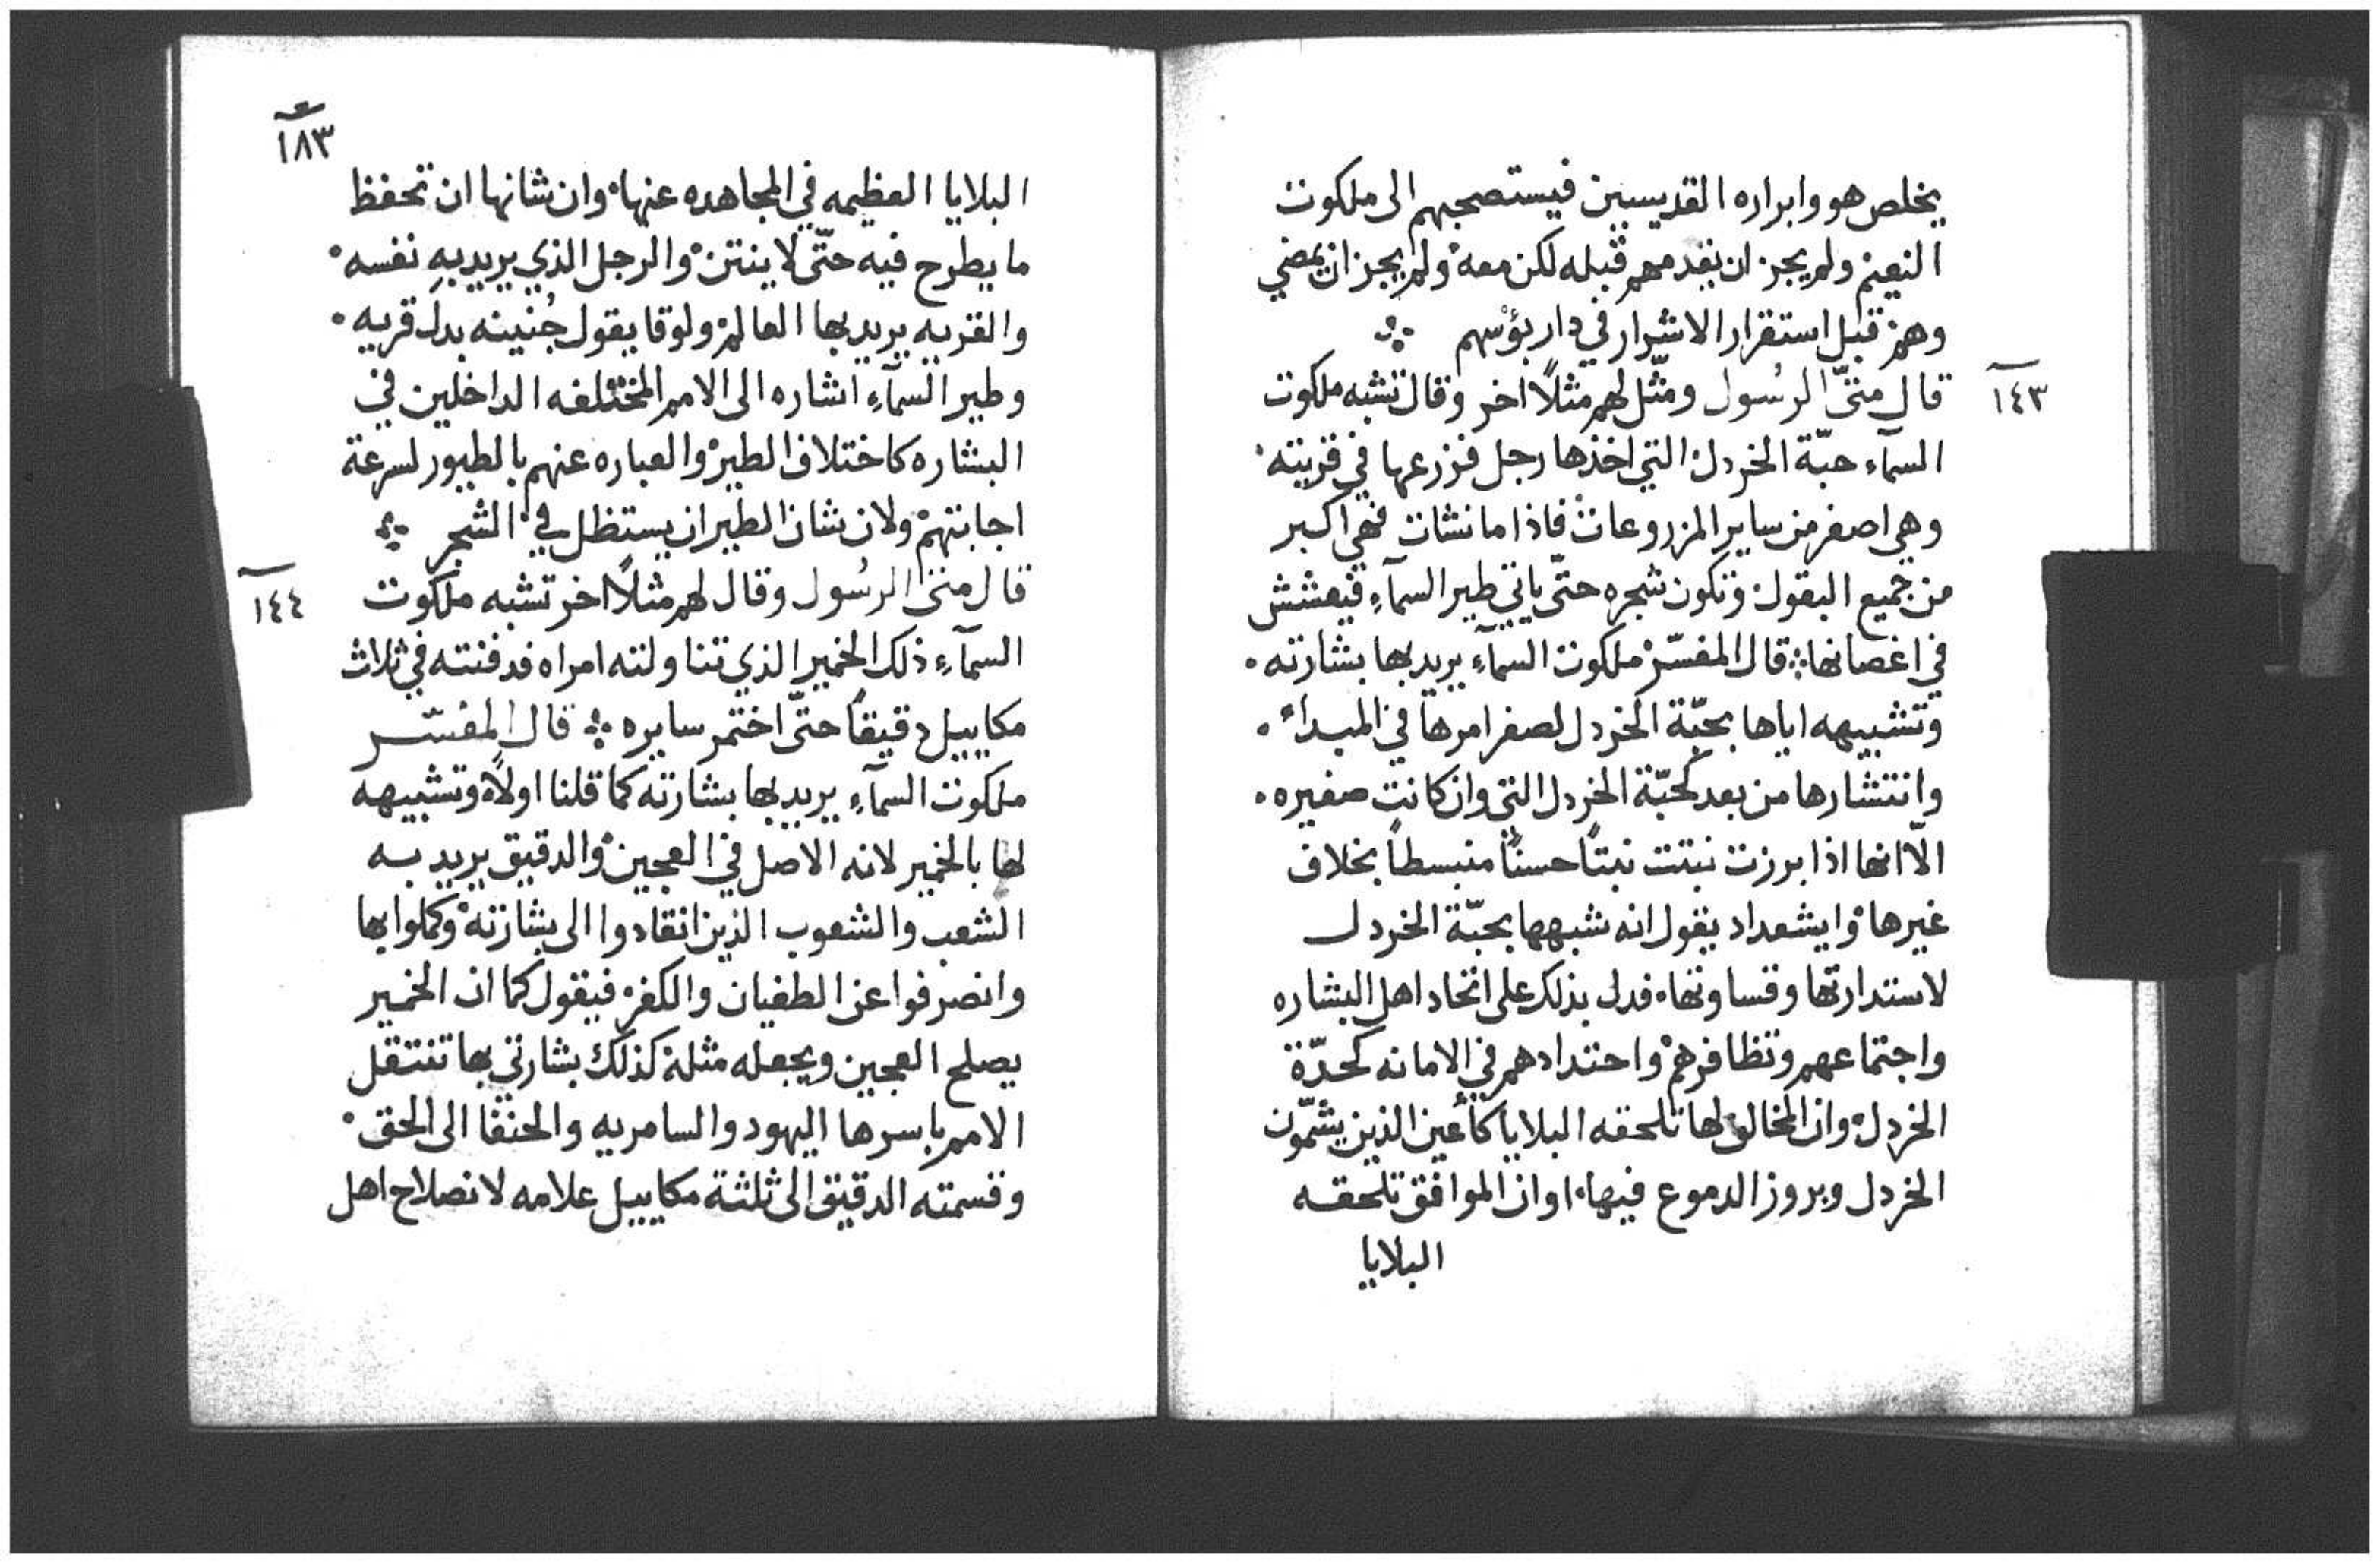 يخلص هو وابراره القديسين فيستصحبهم الى ملكوت
النعيم ولم يجز ان يقدمهم قبله لكن معه ولم يجز ان يمضي
وهم قبل استقرار الاشرار في دار بؤسهم
١٤٣
قال متىّ الرسُول ومثّل لهم مثلاً اخر وقال تشبه ملكوت
السمآء حبّة الخردل التي اخذها رجل فزرعها في قريته
وهي اصغر من ساير المزروعات فاذا ما نشات فهي اكبر
من جميع البقول وتكون شجره حتّى ياتي طير السمآءِ فيعشش
في اغصانها قال المفسّر ملكوت السمآء يريد بها بشارته
وتشبيهه اياها بحبّة الخردل لصغر امرها في المبداء
وانتشارها من بعد كحبّة الخردل التي وان كانت صغيره
الاّ انها اذا برزت نبتت نبتاً حسناً منبسطاً بخلاف
غيرها وايشعداد يقول انه شبهها بحبّة الخردل
لاستدارتها وقساوتها فدل بذلك على اتحاد اهل البشاره
واجتماعهم وتظافرهم واحتدادهم في الامانه كحدّة
الخردل وان المخالف لها تلحقه البلايا كأعين الذين يشمّون
الخردل وبروز الدموع فيها او ان الموافق تلحقه
البلايا
١٨٣
البلايا العظيمه في المجاهده عنها وان شانها ان تحفظ
ما يطرح فيه حتّى لا ينتن والرجل الذي يريد بهِ نفسه
والقريه يريد بها العالم ولوقا يقول جُنينه بدل قريه
وطير السمآءِ اشاره الى الامم المختلفه الداخلين في
البشاره كاختلاف الطير والعباره عنهم بالطيور لسرعة
اجابتهم ولان شان الطير ان يستظل في الشجر
١٤٤
قال متى الرسُول وقال لهم مثلاً اخر تشبه ملكوت
السمآءِ ذلك الخمير الذي تناولته امراه فدفنته في ثلاث
مكاييل دقيقاً حتّى اختمر سايره قال المفسّر
ملكوت السمآءِ يريد بها بشارته كما قلنا اولاً وتشبيهه
لها بالخمير لانه الاصل في العجين والدقيق يريد به
الشعب والشعوب الذين انقادوا الى بشارته وكملوا بها
وانصرفوا عن الطغيان والكفر فيقول كما ان الخمير
يصلح العجين ويجعله مثله كذلك بشارتي بها تنتقل
الامم باسرها اليهود والسامريه والحنفا الى الحق
وقسمته الدقيق الى ثلثة مكاييل علامه لانصلاح اهل